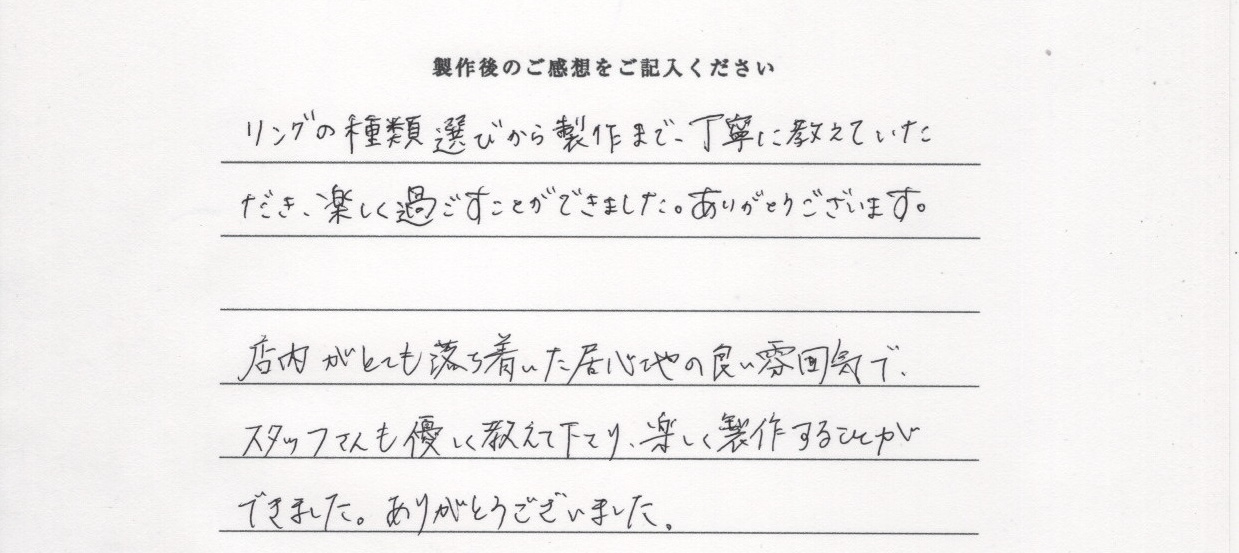 製作後のご感想をご記入ください
リングの種類選びから製作まで、丁寧に教えていた
だき、楽しく過ごすことができました。ありがとうございます。
店内がとても落ち着いた居心地の良い雰囲気で、
スタッフさんも優しく教えて下さり、楽しく製作することが
できました。ありがとうございました。